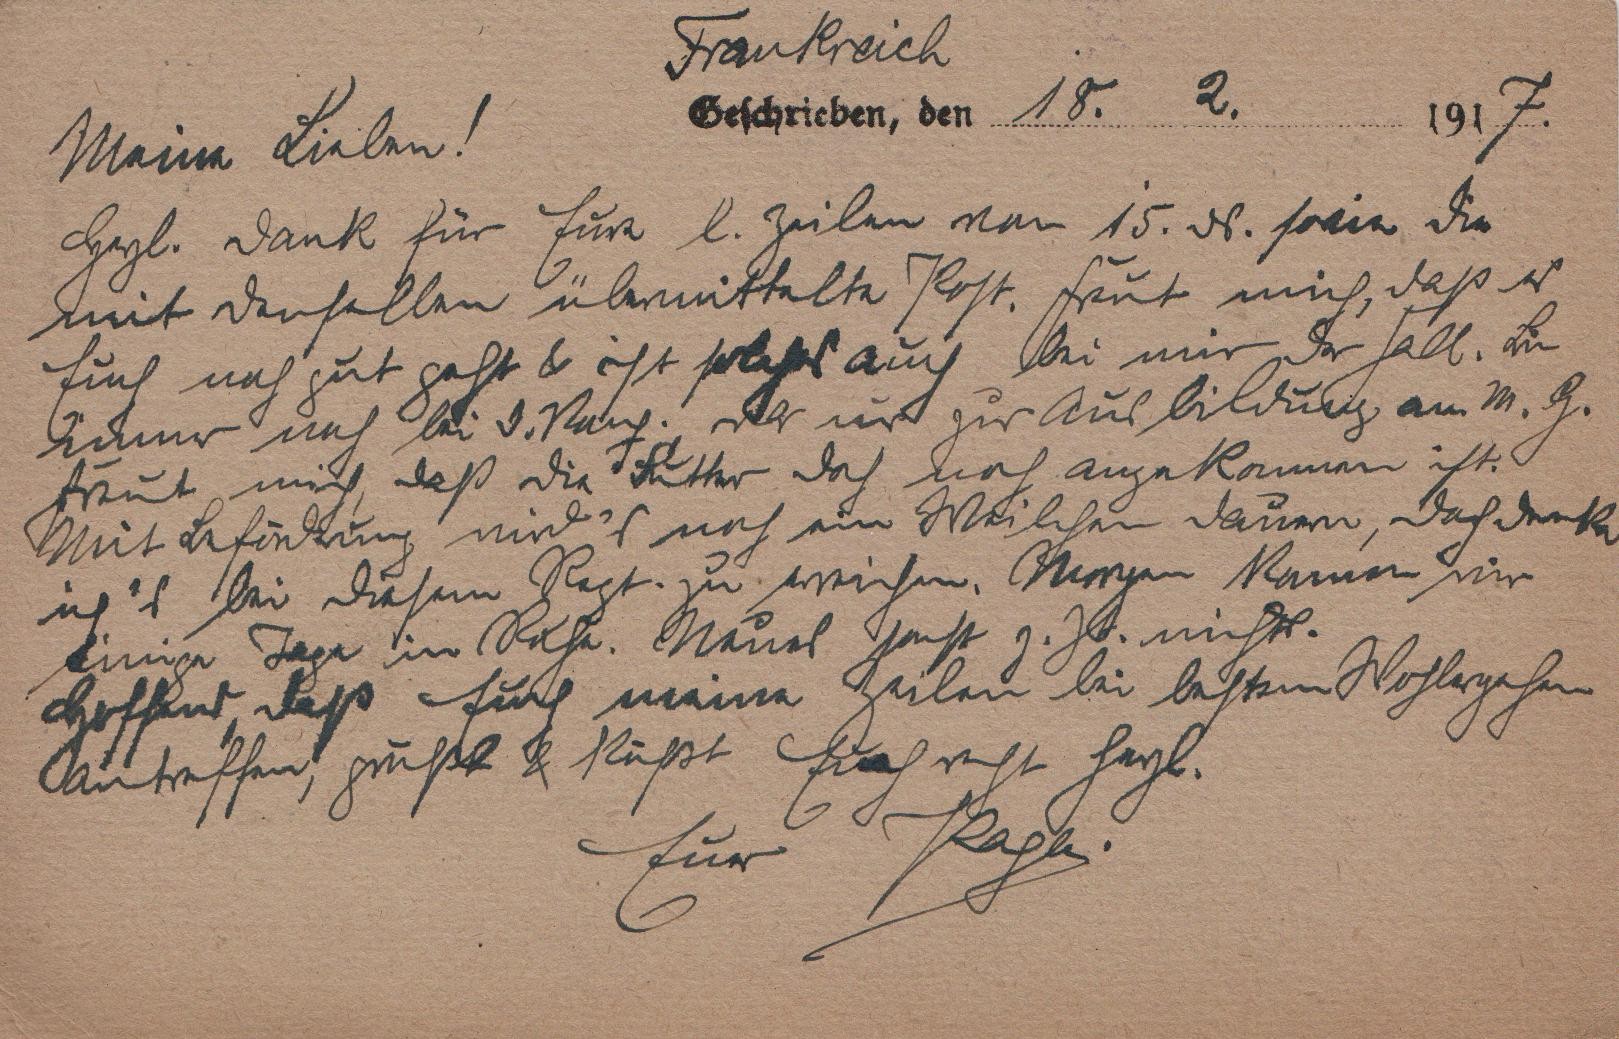 Frankreich
Geschrieben, den 18. 2. 1917.
Meine Lieben!
Herzl. Dank für Eure l. Zeilen vom 15. ds. sowie die
mit denselben übermittelte Post. Freut mich, daß es
Euch noch gut geht & ist solches auch bei mir der Fall. Bin
immer noch bei I. nur zur Ausbildung am M. G.
Freut mich, daß die Butter doch noch angekommen ist.
Mit Beförderung wird's noch ein Weilchen dauern, doch denke
ich's bei diesem Regt. zu erreichen. Morgen kommen wir
einige Tage in Ruhe. Neues sonst z. Zt. nichts.
Hoffend, daß Euch meine Zeilen bei bestem Wohlergehen
antreffen, grüßt & küßt Euch recht herzl.
Euer